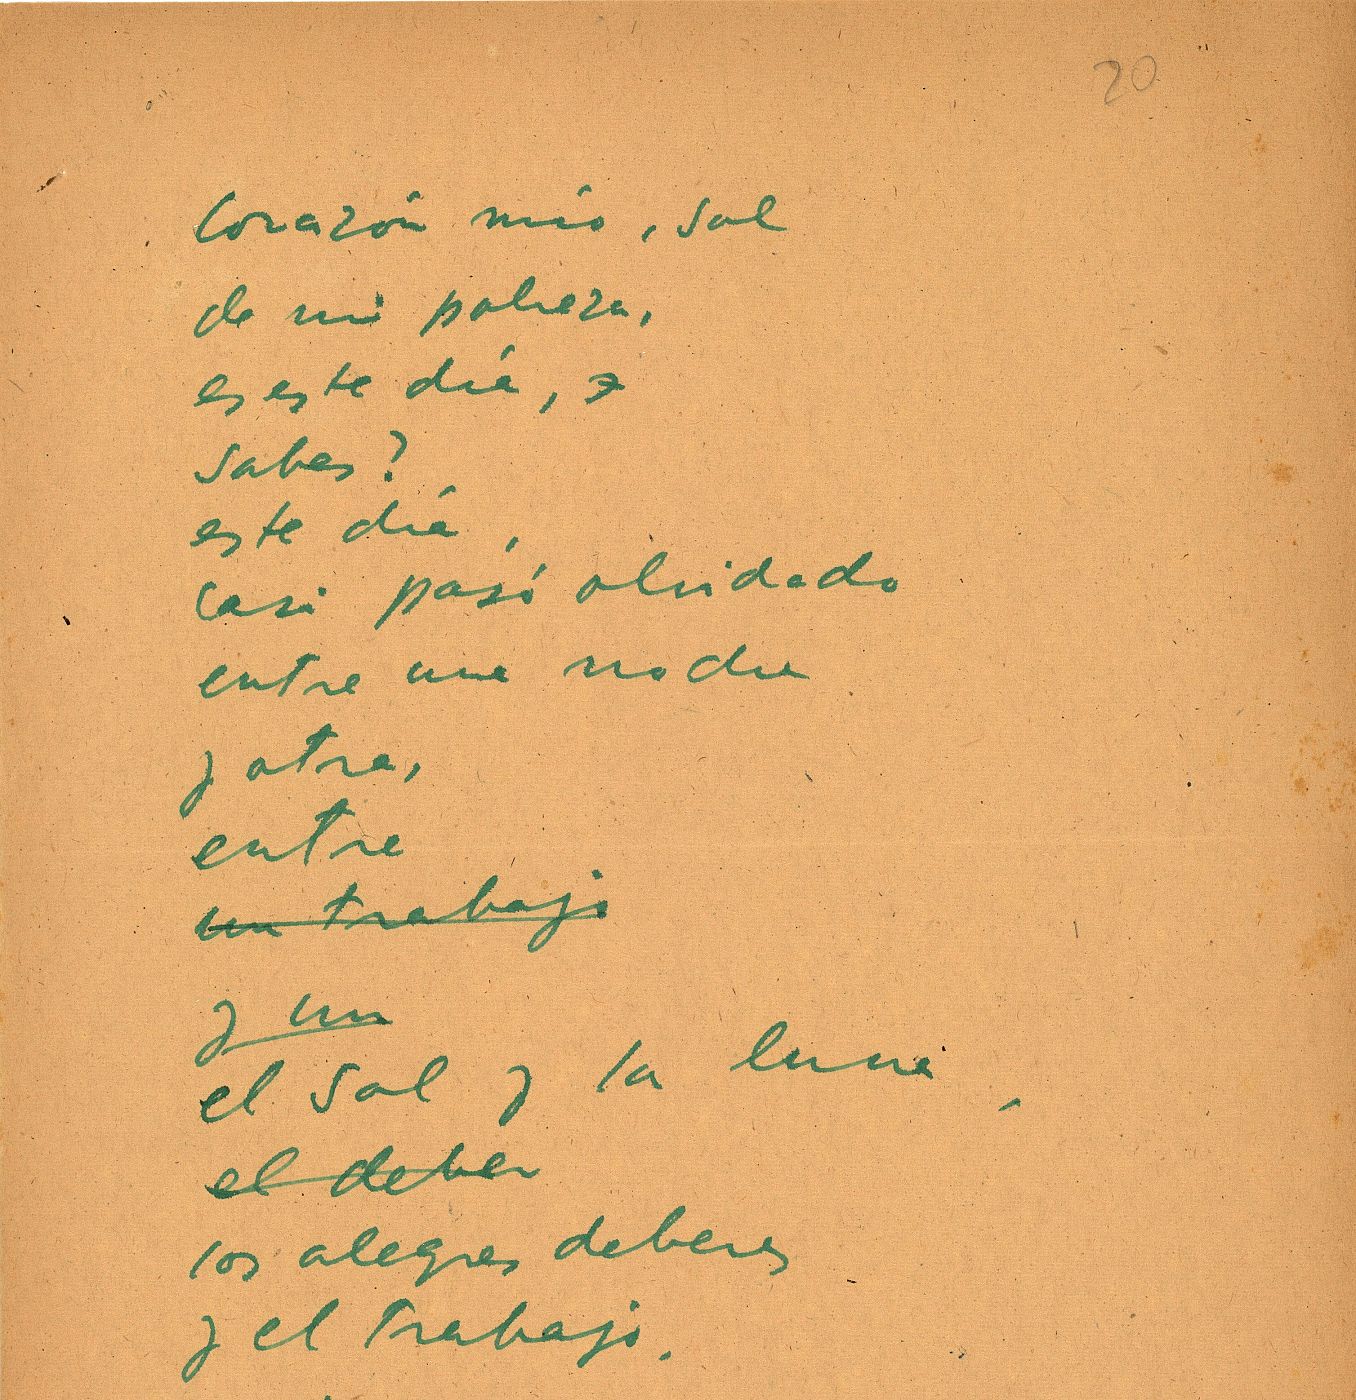 20
Corazón mío, sol
de mi pobreza,
es este día,
sabes?
este día,
casi pasó olvidado
entre una noche
y otra,
entre
un trabajo
y un
el sol y la luna,
el deber
los alegres deberes
y el trabajo,